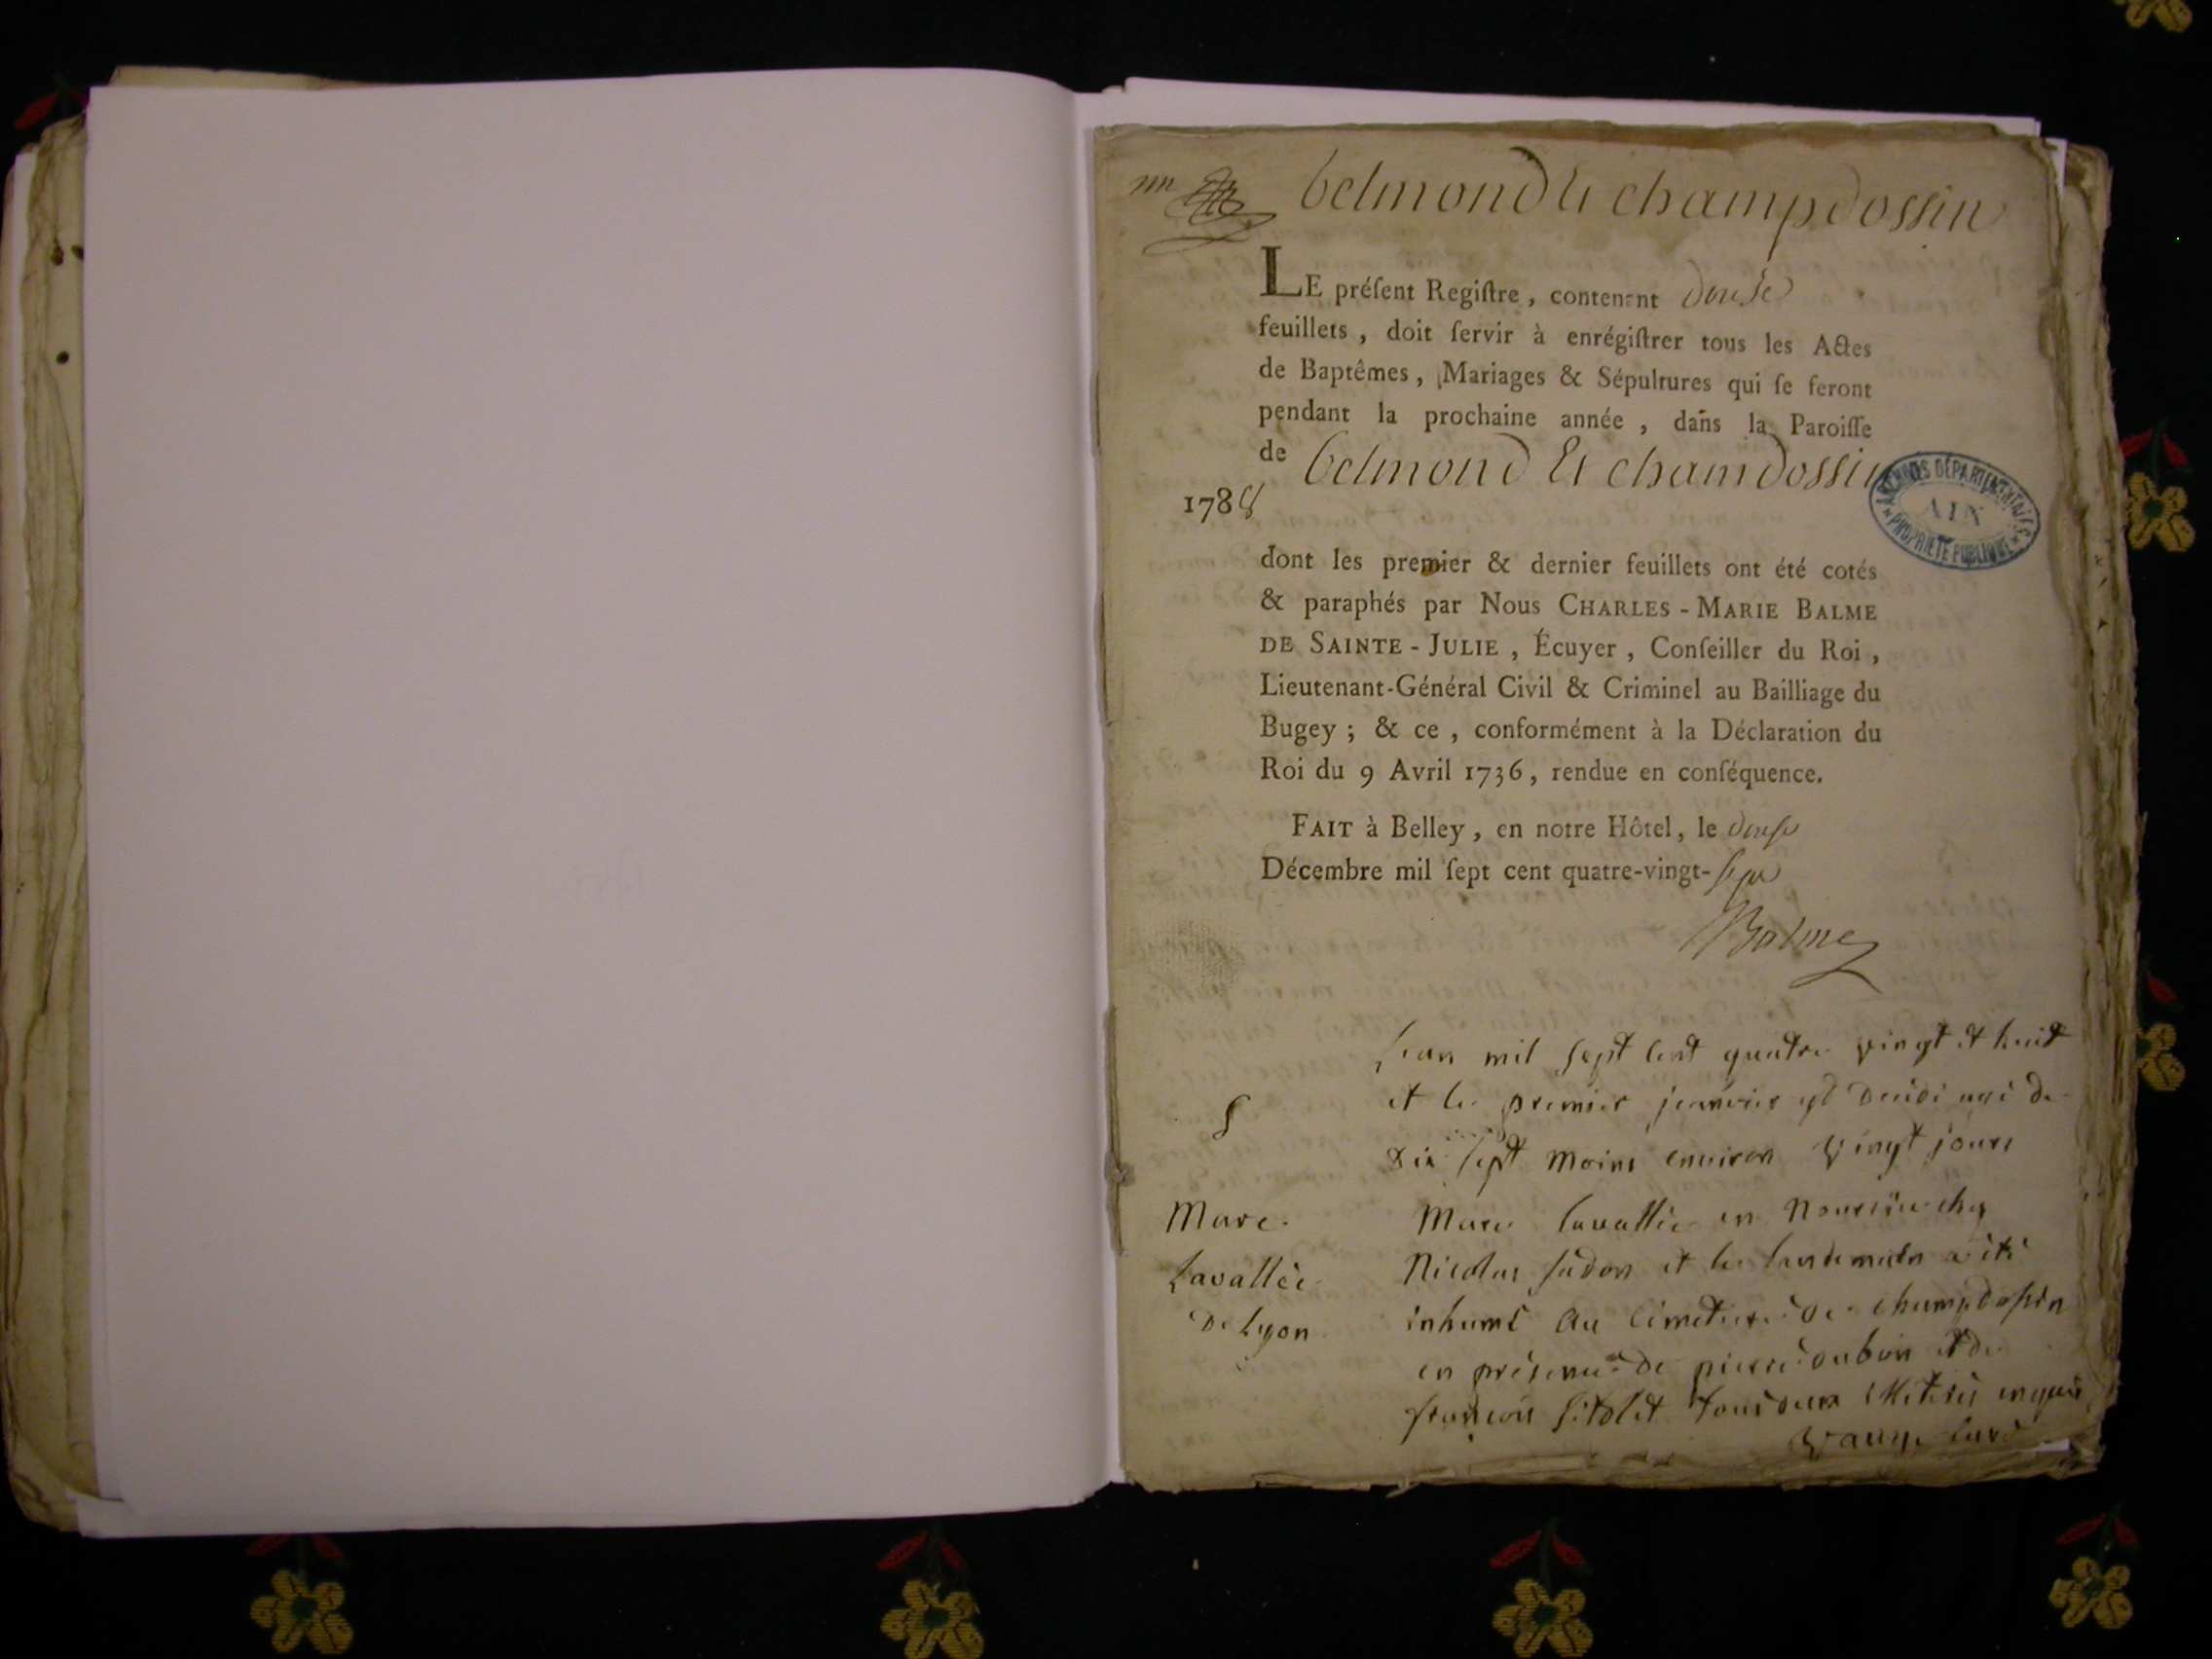 belmond et champdossin
LE préſent Regiſtre, contenant douse
feuillets, doit ſervir à enrégiſtrer tous les Actes
de Baptêmes, Mariages & Sépultures qui ſe feront
pendant la prochaine année, dans la Paroiſſe
de belmond et chamdossin
1788
ARCHIVES DÉPARTEMENTALES
AIN
PROPRIÉTÉ PUBLIQUE
dont les premier & dernier feuillets ont été cotés
& paraphés par Nous CHARLES-MARIE BALME
DE SAINTE-JULIE, Écuyer, Conſeiller du Roi,
Lieutenant-Général Civil & Criminel au Bailliage du
Bugey; & ce, conformément à la Déclaration du
Roi du 9 Avril 1736, rendue en conſéquence.
FAIT à Belley, en notre Hôtel, le douse
Décembre mil ſept cent quatre-vingt-sept
Balme
S
Marc
Lavallée
De Lyon
L'an mil sept cent quatre vingt et huit
et le premier janvier est décédé agé de
dix sept moins environ vingt jours
Marc lavallée en nourrice chez
Nicolas et le lendemain a été
inhumé au cimetiere de champdossin
en présence de pierre et de
françois tous deux illiterés enquis
curé